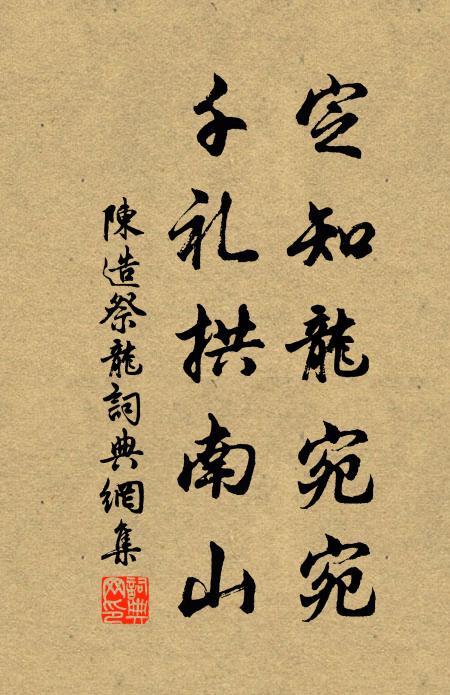 定知龍宛宛
千礼拱南山
陳造祭龍詞典網集
詞典网印